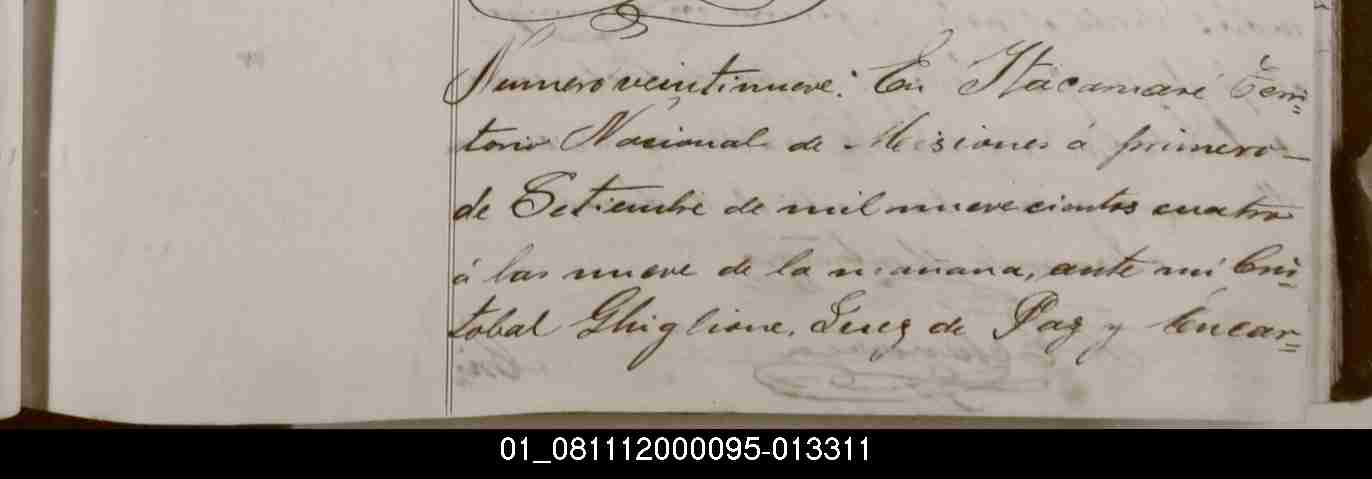 Numero veintinueve: En Itacaruaré Terri=
torio Nacional de Misiones á primero
de Setiembre de mil nuevecientos cuatro
á las nueve de la mañana, ante mi Cris=
tobal Ghiglione, Juez de Paz y Encar=
01_081112000095-013311